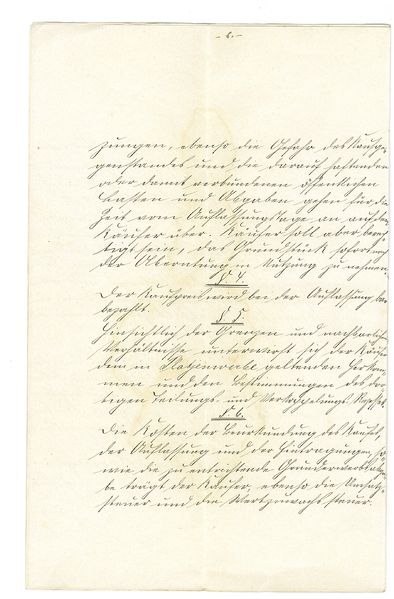 - 2. -
zungen, ebenso die Gefahr des Kaufge-
genstandes und die darauf haftenden
oder damit verbundenen öffentlichen
Lasten und Abgaben gehen für die
Zeit vom Auflassungstage an auf den
Käufer über. Käufer soll aber berech-
tigt sein, das Grundstück sofort nach
der Aberntung in Nutzung zu nehmen.
§. 4.
Der Kaufpreis wird bei der Auflassung bar
bezahlt.
§ 5.
Hinsichtlich der Grenzen und nachbarlichen
Verhältnisse unterwirft sich der Käufer
dem in geltenden Herkom-
men und den Bestimmungen des dor-
tigen Teilungs- und Verkoppelungs-Rezesses.
§. 6.
Die Kosten der Beurkundung des Kaufes,
der Auflassung und der Eintragungen, so-
wie die zu entrichtende Grunderwerbsabga-
be trägt der Käufer, ebenso die Umsatz-
steuer und die Wertzuwachssteuer.